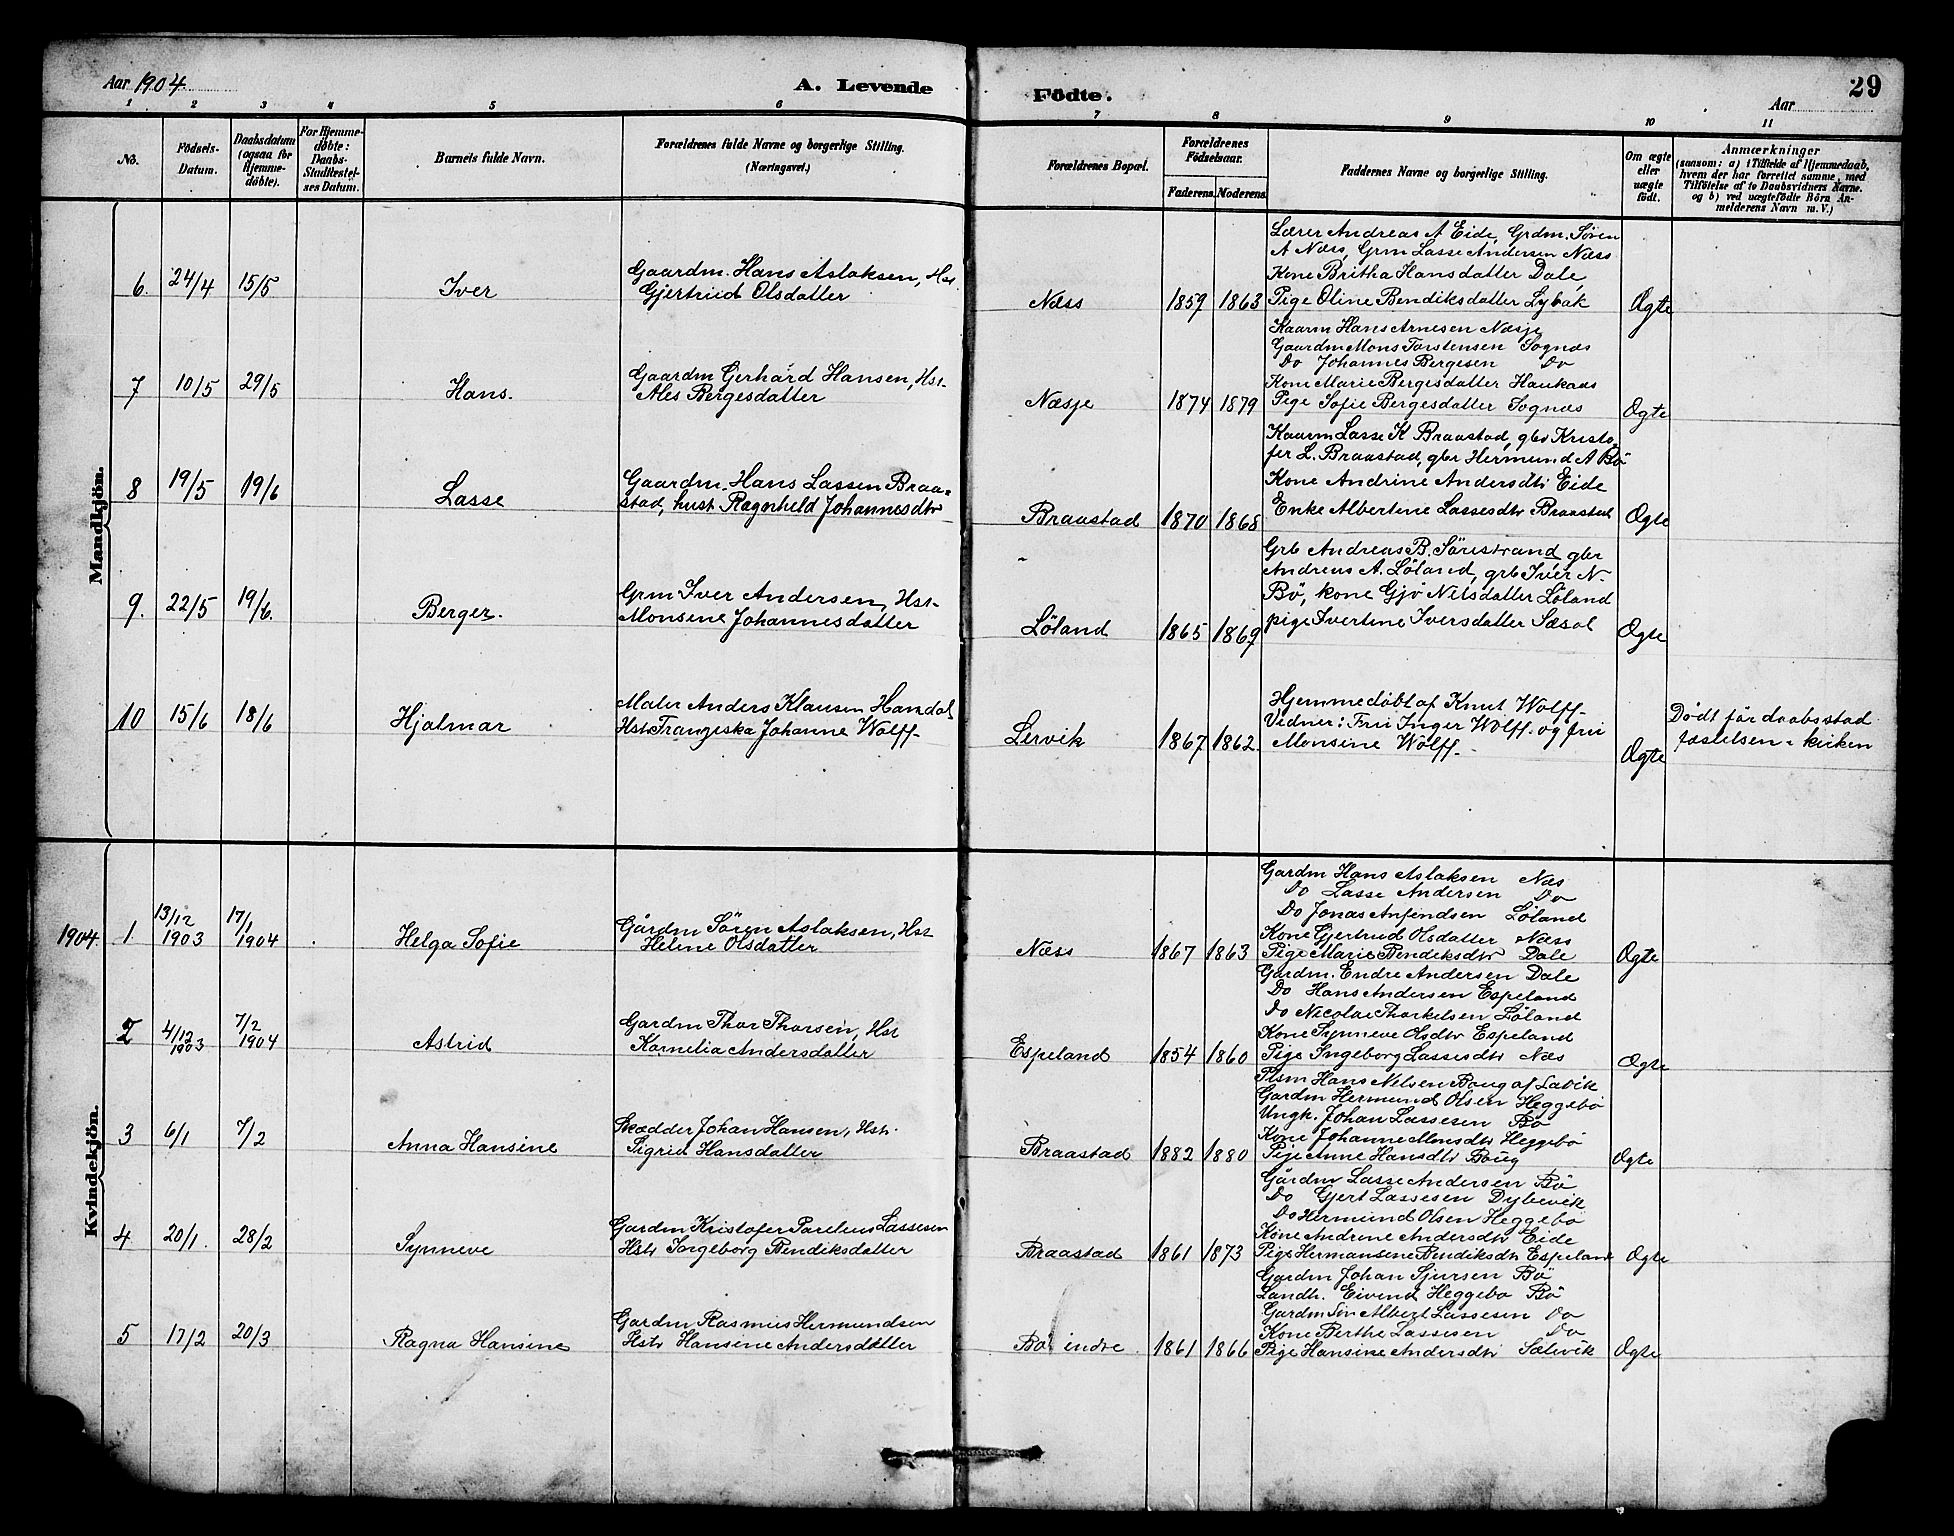 Aar 1904.
A. Levende
Födte.
29
Aar
1
2
3
4
5
6
7
8
9
10
11
No.
Födsels-
Datum.
Daabsdatum
(ogsaa for
Hjemme-
döbte).
For Hjemme-
döbte:
Daabs-
Stadfæstel-
ses Datum.
Barnets fulde Navn.
Forældrenes fulde Navne og borgerlige Stilling.
(Næringsvei.)
Forældrenes Bopæl.
Forældrenes
Födselsaar.
Faderens.
Moderens.
Faddernes Navne og borgerlige Stilling.
Om ægte
eller
uægte
födt.
Anmærkninger
(saasom: a) i Tilfælde af Hjemmedaab,
hvem der har forrettet samme, med
Tilföielse af to Daabsvidners Navne.
og b) ved uægtefödte Börn An-
melderens Navn m. V.)
Mandkjön.
6.
24/4
15/5
Iver
Gaardm. Hans Aslaksen, Hst.
Gjertrud Olsdatter
Næss
1859
1863
Lærer Andreas A Eide, Grdm. Søren
A Næss, Grm Lasse Andersen Næss
Kone Britha Hansdatter Dale,
Pige Oline Bendiksdatter Lybæk
Ægte
7
10/5
29/5
Hans.
Gaardm Gerhard Hansen, Hst.
Ales Bergesdatter
Næsje
1874
1879
Kaarm Hans Arnesen Næsje
Gaardm Mons Torstensen Sognæs
Do Johannes Bergesen Do
Kone Marie Bergesdatter Haukaas
Pige Sofie Bergesdatter Sognæs
Ægte
8
19/5
19/6
Lasse
Gaardm. Hans Lassen Braa-
stad, hust Ragnhild Johannesdtr
Braastad
1870
1868
Kaarm Lasse K Braastad, gbr Kristo-
fer L. Braastad, gbr Hermund A Bö
Kone Andrine Andersdtr Eide
Enke Albertine Lassesdtr Braastad
Ægte
9.
22/5
19/6.
Berger.
Grm Iver Andersen, Hst-
Monsine Johannesdatter
Löland
1865
1869
Grb Andreas B. Sörestrand gbr
Andreas A. Löland, grb Iver N.
Bö, kone Gjö Nilsdatter Löland
pige Ivertine Iversdatter Sæsol
Ægte
10
15/6
18/6
Hjalmar
Maler Anders Klausen Hamdal
Hst. Franziska Johanne Wolff-
Lervik
1867
1862.
Hjemmedöbt af Knut Wolff-
Vidner: Fru Inger Wolff. og fru
Monsine Wolff-
Ægte
Dödt för daabsstad-
fæstelsen i kirken
Kvindekjön.
1904
1
13/12
1903
17/1
1904
Helga Sofie
Gårdm Sören Aslaksen, Hst
Helene Olsdatter
Næss
1867
1863
Gardm Hans Aslaksen Næs
Do Lasse Andersen Do
Do Jonas Anfindsen Löland
Kone Gjertrud Olsdatter Næss
Pige Marie Bendiksdtr Dale
Ægte
2
4/12
1903
7/2
1904
Astrid
Gardm Thor Thorsen, Hst
Kornelia Andersdatter
Espeland
1854
1860
Gardm. Endre Andersen Dale
Do Hans Andersen Espeland
Do Nicolai Thorkelsen Löland
Kone Synneve Olsdtr Espeland
Pige Ingeborg Lassesdtr Næs
Ægte
3
6/1
7/2
Anna Hansine
Skædder Johan Hansen, Hst.
Sigrid Hansdatter
Braastad
1882
1880
Plsm Hans Nilsen Baug af Lavik
Gardm Hermund Olsen Heggebö
Ungk. Johan Lassesen Bö
Kone Johanne Monsdtr Heggebö
Pige Anne Hansdtr Baug
Ægte
4
20/1.
28/2
Synneve
Gardm Kristofer Parelius Lassesen
Hstr Ingeborg Bendiksdatter
Braastad
1861
1873
Gårdm Lasse Andersen Bö
Do Gjert Lassesen Dybevik
Do Hermund Olsen Heggebö
Kone Andrine Andersdtr Eide
Pige Hermansine Bendiksdtr Espeland
Ægte
5
17/2
20/3
Ragna Hansine
Gardm Rasmus Hermundsen
Hstr Hansine Andersdatter
Bö indre
1861
1866
Gardm Johan Sjursen Bö
Landh. Eivind Heggebø Bö
Gardm Sön Albert Lassesen Do
Kone Berthe Lassesen Do
Pige Hansine Andersdtr Sælevik
Ægte